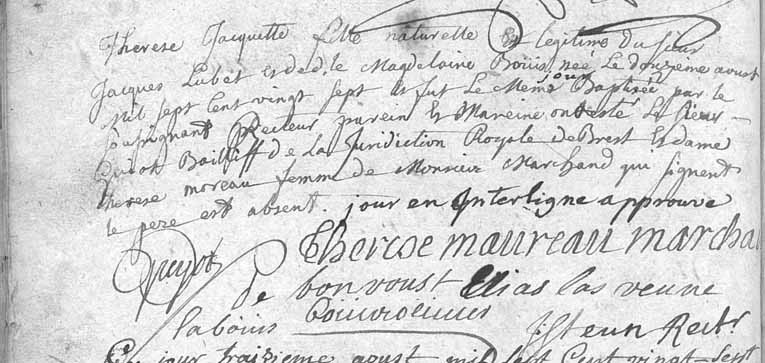 Therese Jacquette fille naturelle et legitime du sieur
Jacques Lubet et de d.lle Magdelaine Boüis, née le douzeme aoust
mil sept cent vingt sept et fut le meme jour Baptisée par le
soussignant Recteur parein et Mareine ont esté le sieur
Guyot Bailliff de La Juridiction Royale de Brest et dame
therese moreau femme de Monsieur Marchand qui signent
le pere est absent. jour en Interligne approuvé
Guyot Therese maureau marchal
de bonvoust Elias las veuve
laboüis
Jsteun Rectr
Ce jour traizieme aoust mil sept Cent vingt sept